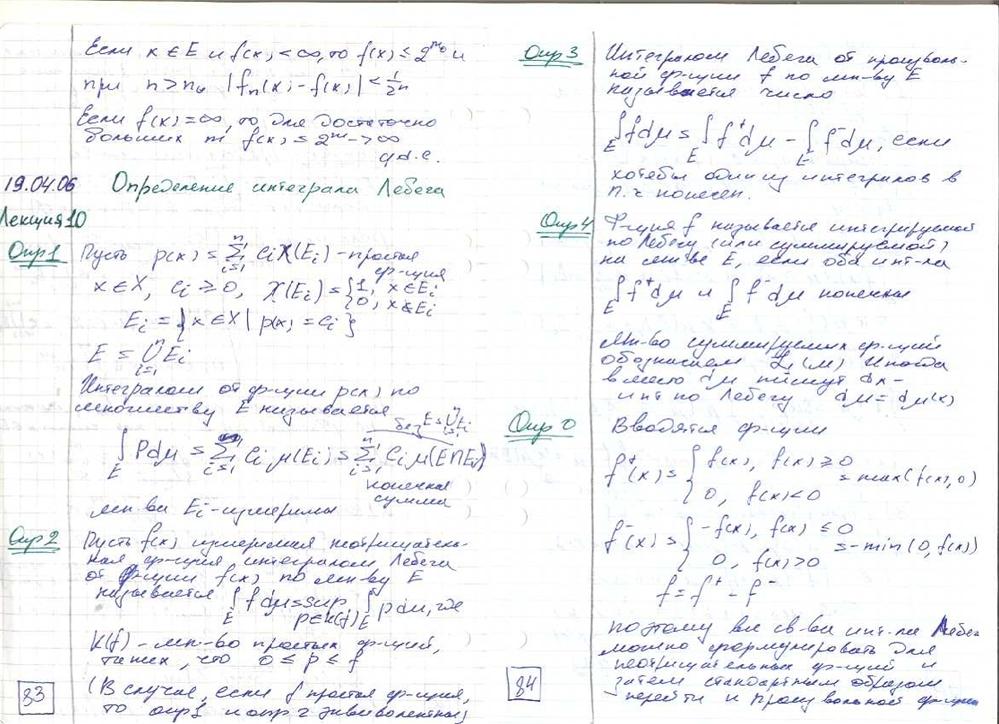 Если x ∈ E и f(x) < ∞, то f(x) ≤ 2^{n₀} и
при n > n₀ |fₙ(x) - f(x)| < 1/2ⁿ
Если f(x) = ∞, то для достаточно
больших m f(x) ≤ 2^m → ∞
q.d.e.
19.04.06 Определение интеграла Лебега
Лекция 10
Опр 1 Пусть p(x) = Σ_{i=1}^{n} cᵢ χ(Eᵢ) - простая
ф-ция
x ∈ X, cᵢ ≥ 0, χ(Eᵢ) = {1, x ∈ Eᵢ
0, x ∉ Eᵢ
Eᵢ = {x ∈ X | p(x) = cᵢ}
E = ⋃_{i=1}^{n} Eᵢ
Интегралом от ф-ции p(x) по
множеству E называется
без E = ⋃_{i=1}^{n} Eᵢ
∫_E P dμ = Σ_{i=1}^{n} cᵢ μ(Eᵢ) = Σ_{i=1}^{n} cᵢ μ(E∩Eᵢ)
конечная
сумма
мн-ва Eᵢ - измеримы
Опр 2 Пусть f(x) измеримая неотрицатель-
ная ф-ция интегралом Лебега
от ф-ции f(x) по мн-ву E
называется ∫_E f dμ = sup_{p∈K(f)} ∫_E p dμ, где
K(f) - мн-во простых ф-ций,
таких, что 0 ≤ p ≤ f
(В случае, если f простая ф-ция,
то опр 1 и опр 2 эквивалентны)
83
Опр 3 Интегралом Лебега от произволь-
ной ф-ции f по мн-ву E
называется число
∫_E f dμ = ∫_E f⁺ dμ - ∫_E f⁻ dμ, если
хотебы один из интегралов в
п.ч конечен.
Опр 4 Ф-ция f называется интегрируемой
по Лебегу (или суммируемой)
на мн-ве E, если оба инт-ла
∫_E f⁺ dμ и ∫_E f⁻ dμ конечны
Мн-во суммируемых ф-ций
обозначаем L(μ) Иногда
вместо dμ пишут dx -
инт по Лебегу dμ = dμ(x)
Опр 0 Вводятся ф-ции
f⁺(x) = {f(x), f(x) ≥ 0
0, f(x) < 0 = max(f(x), 0)
f⁻(x) = {-f(x), f(x) ≤ 0
0, f(x) > 0 = -min(0, f(x))
f = f⁺ - f⁻
поэтому все св-ва инт-ла Лебега
можно формулировать для
неотрицательных ф-ций и
затем стандартным образом
перейти к произвольной ф-ции
84